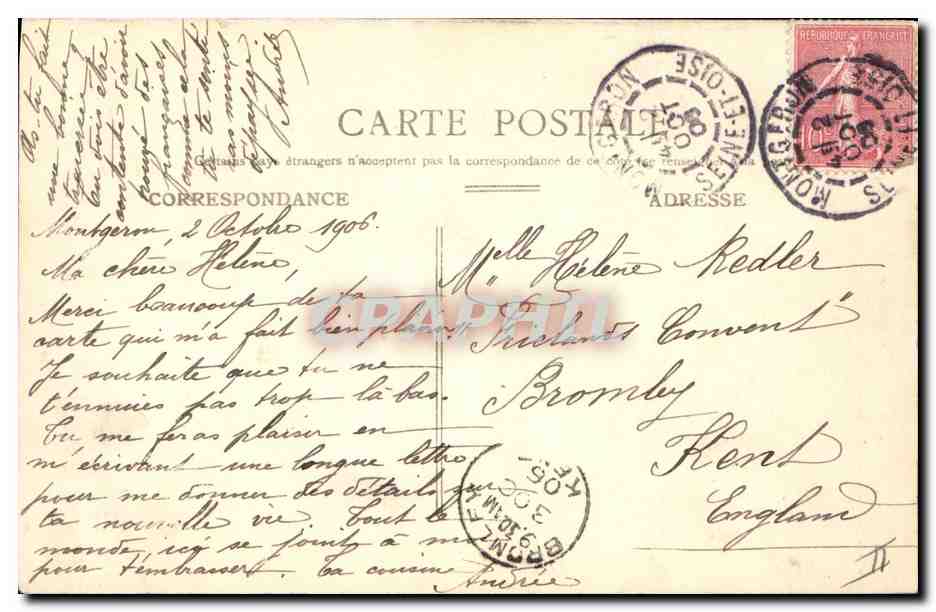 As-tu fait
une bonne
traversée
tu dois être
contente d'avoir
congé des
françaises
comme cela
tu te sentiras moins
Andrée
REPUBLIQUE FRANÇAISE
MONTGERON
SEINE-ET-OISE
2 OCT 06
MONTGERON
SEINE-ET-OISE
OCT 06
CARTE POSTALE
Certains pays étrangers n'acceptent pas la correspondance de ce côté se renseigner à la
CORRESPONDANCE
ADRESSE
Montgeron, 2 Octobre 1906.
Ma chère Hélène,
Merci beaucoup de ta
carte qui m'a fait bien plaisir
Je souhaite que tu ne
t'ennuies pas trop là-bas.
Tu me feras plaisir en
m'écrivant une longue lettre
pour me donner des détails sur
ta nouvelle vie. Tout le
monde, ici se joint à moi
pour t'embrasser. Ta cousine
Andrée
Melle Hélène Redler
Convent"
Bromley
Kent
England
BROMLEY
KENT
9.30 AM
3 OC
06
II
CPAPHIL